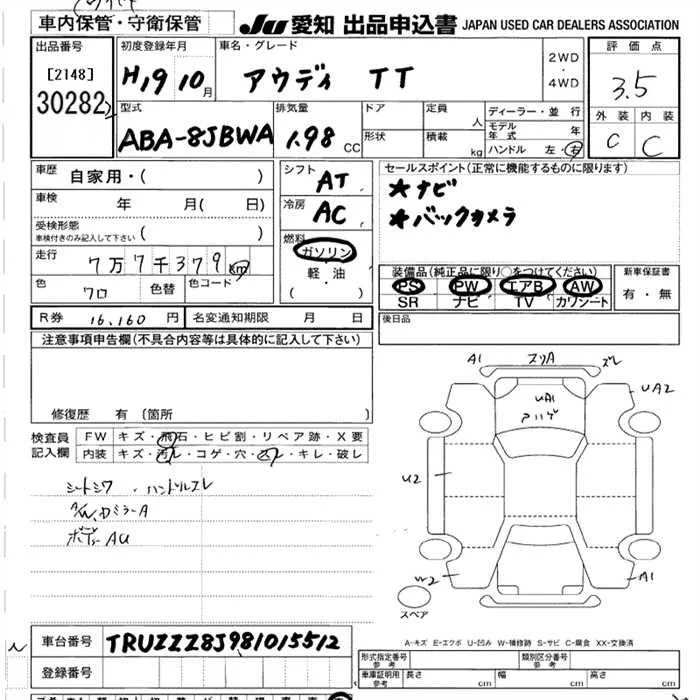 車内保管・守衛保管
JU 愛知 出品申込書 JAPAN USED CAR DEALERS ASSOCIATION
出品番号 [2148] 30282
初度登録年月 H19 10月
車名・グレード アウディ TT
2WD・4WD
評価点 3.5
外装 C 内装 C
型式 ABA-8JBWA
排気量 1.98 CC
ドア 形状
定員 人 積載 kg
ディーラー・並行
モデル年式 年
ハンドル 左・右
車歴 自家用・( )
車検 年 月( 日)
受検形態 車検付きのみ記入して下さい ( )
走行 7万7千379km
色 クロ 色替 色コード
シフト AT
冷房 AC
燃料 ガソリン 軽・油 ( ・ )
セールスポイント(正常に機能するものに限ります)
★ナビ
★バックカメラ
装備品(純正品に限り○をつけてください)
PS PW エアB AW
SR ナビ TV カワシート
新車保証書 有・無
R券 16,160 円 名変通知期限 月 日
後日品
注意事項申告欄(不具合内容等は具体的に記入して下さい)
修復歴 有 [箇所 ]
検査員記入欄
FW キズ・飛石・ヒビ割・リペア跡・X要
内装 キズ・汚レ・コゲ・穴・スレ・キレ・破レ
シートシワ・ハンドルスレ
A/W、ドミラーA
ボデーAU
A1 スリA ズレ
UA1
UA2
U2
W2
A1
スペア
A-キズ E-エクボ U-凹み W-補修跡 S-サビ C-腐食 XX-交換済
車台番号 TRUZZZ8J981015512
登録番号
形式指定番号 参考 類別区分番号 参考
車庫証明用 参考 長さ cm 幅 cm 高さ cm